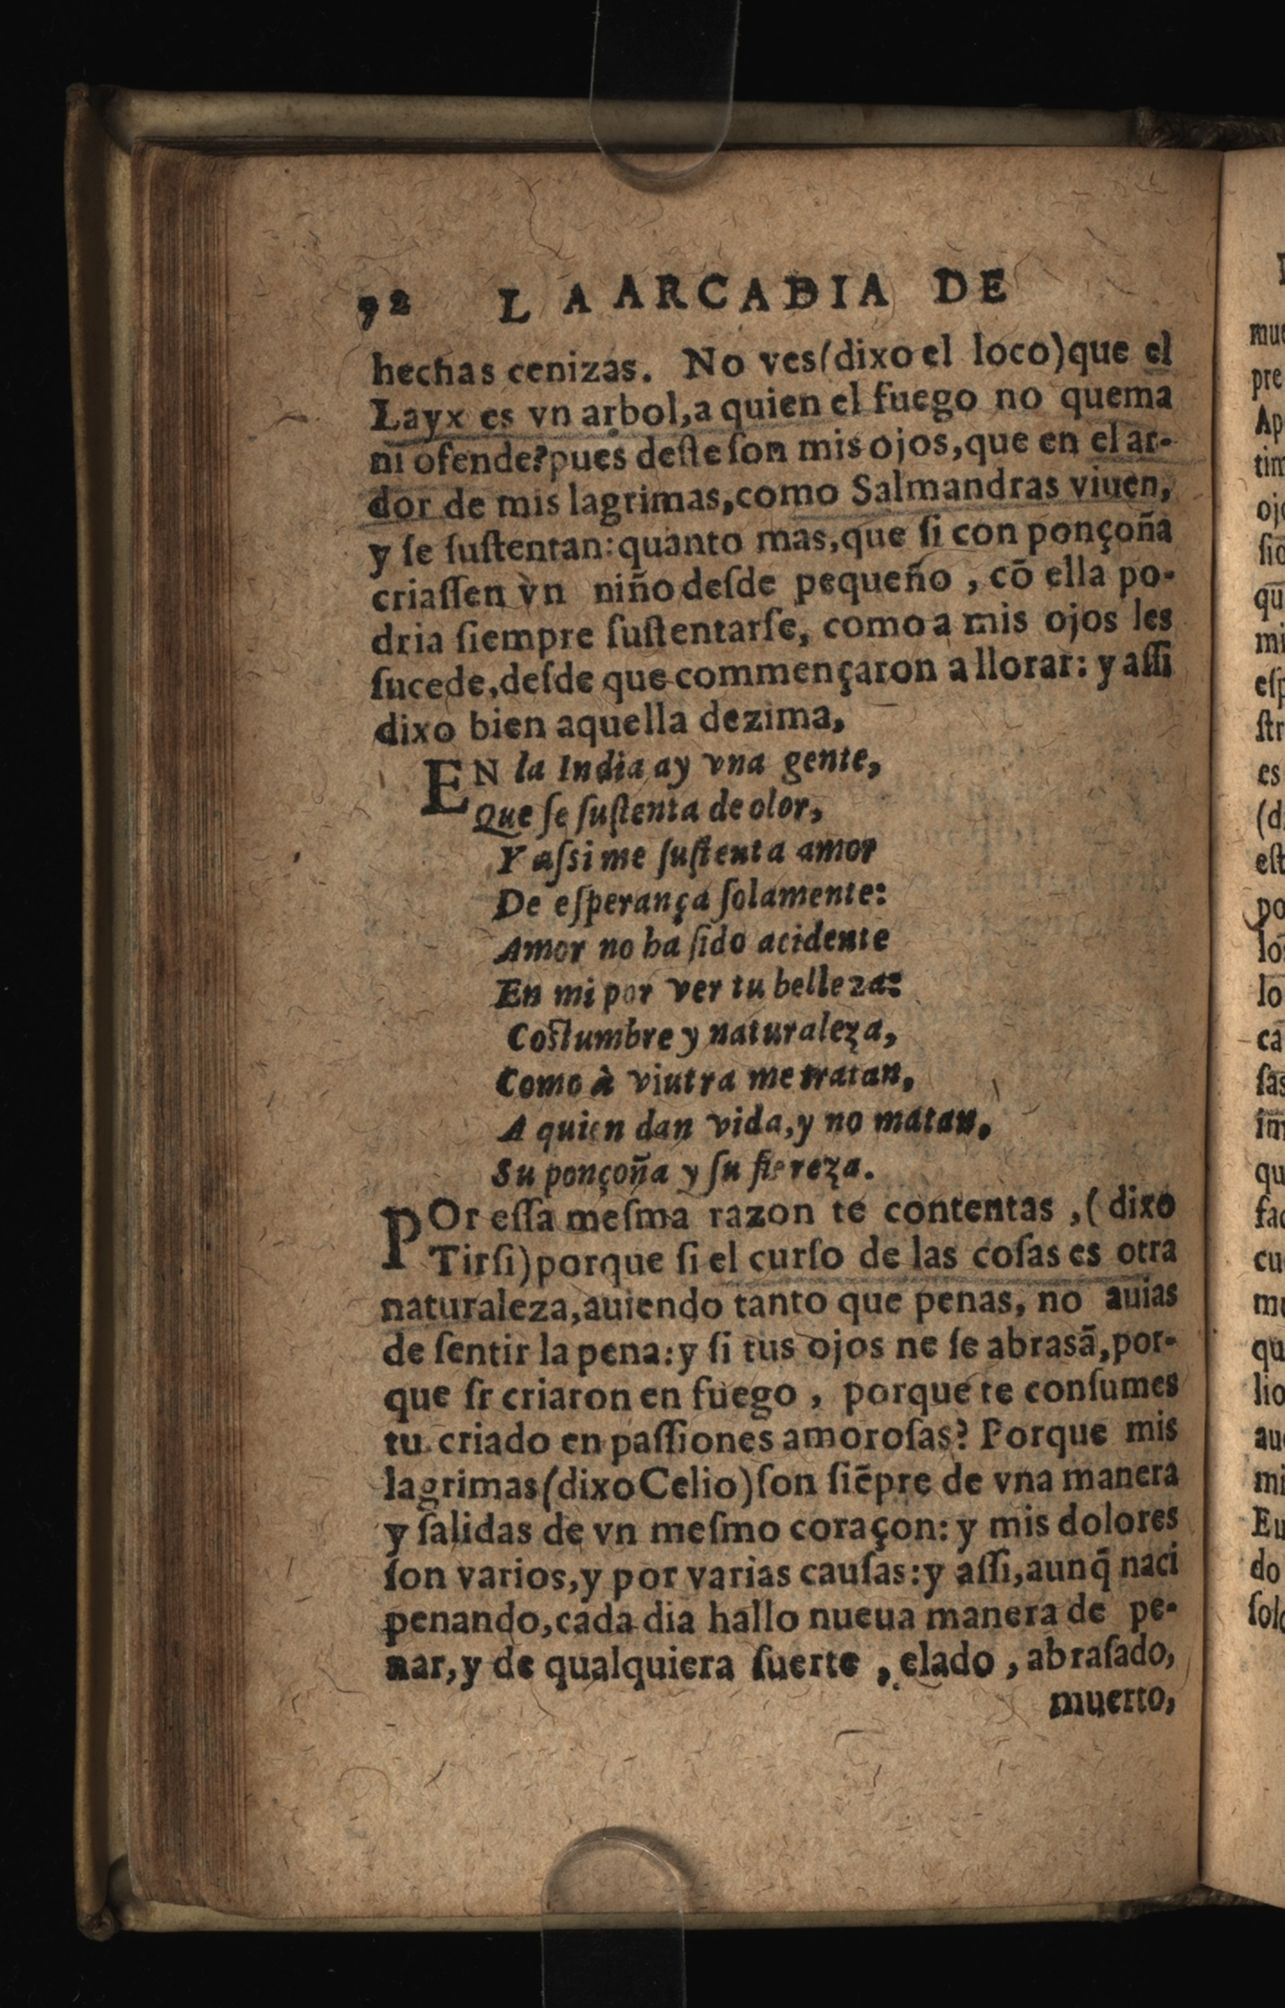 92 LA ARCADIA DE
hechas cenizas. No ves (dixo el loco) que el
Layx es vn arbol, a quien el fuego no quema
ni ofende? pues deste ſon mis ojos, que en el ar-
dor de mis lagrimas, como Salmandras viuen,
y ſe ſuſtentan: quanto mas, que ſi con ponçoña
criaſſen vn niño deſde pequeño, cõ ella po-
dria ſiempre ſuſtentarſe, como a mis ojos les
ſucede, deſde que commençaron a llorar: y aſſi
dixo bien aquella dezima,
EN la India ay vna gente,
Que ſe ſuſtenta de olor,
Y aſsi me ſuſtenta amor
De eſperança ſolamente:
Amor no ha ſido acidente
En mi por ver tu belleza:
Coſtumbre y naturaleza,
Como à viutra me tratan,
A quien dan vida, y no matan,
Su ponçoña y ſu fiereza.
POr eſſa meſma razon te contentas, (dixo
Tirſi) porque ſi el curſo de las coſas es otra
naturaleza, auiendo tanto que penas, no auias
de ſentir la pena: y ſi tus ojos ne ſe abraſã, por-
que ſr criaron en fuego, porque te conſumes
tu criado en paſſiones amoroſas? Porque mis
lagrimas (dixo Celio) ſon ſiẽpre de vna manera
y ſalidas de vn meſmo coraçon: y mis dolores
ſon varios, y por varias cauſas: y aſſi, aunq̃ naci
penando, cada dia hallo nueua manera de pe-
nar, y de qualquiera ſuerte, elado, abraſado,
muerto,